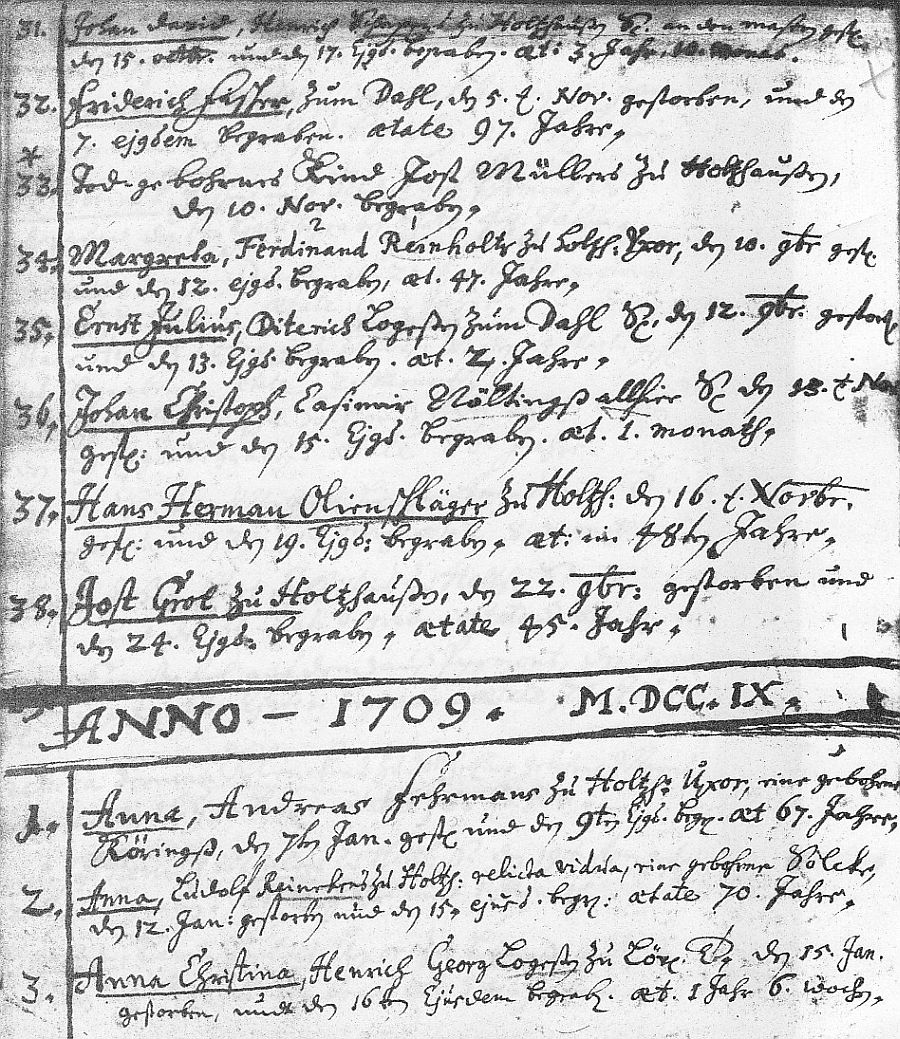 31. Johan David, Henrich zu Holtzhaußen S. an den masern gest.
den 15. octbr. und den 17. Ejgs. begraben. æt: 3. Jahr, 10. monat.
32. Friderich Fasser, zum Dahl, den 5. t. Nov. gestorben, und den
7. ejgsem begraben. ætate 97. Jahre,
* 33. Tod-gebohrnes Kind Jost Müllers zu Holtzhaußen,
den 10. Nov. begraben,
34. Margreta, Ferdinand Reinholtz zu Holtzh: Uxor, den 10. 9br gest.
und den 12. ejgs. begraben, æt. 47. Jahre,
35. Ernst Julius, Diterich Logeßen zum Dahl S. den 12. 9br. gestorb
und den 13. Ejgs. begraben. æt. 2, Jahre,
36, Johan Christoph, Casimir Nöltingß allhier S. den 13. t. Nov
gest: und den 15. Ejgs. begraben. æt. 1. monath,
37. Hans Herman Olienschläger zu Holtzh: den 16. t. Novbr.
gest: und den 19. Ejgs: begraben, æt: im 48ten Jahre,
38. Jost Grol zu Holtzhaußen, den 22. 9br: gestorben und
den 24. Ejgs: begraben, ætate 45. Jahr,
ANNO – 1709. M.DCC.IX.
1. Anna, Andreas Fehrmans zu Holtzh: Uxor, eine gebohrne
Köringß, den 7ten Jan. gest und den 9ten Ejgs. begr. æt 67. Jahre,
2. Anna, Ludolf Reinekers zu Holtzh: relicta vidua, eine gebohrne Sölcke,
den 12. Jan: gestorben und den 15. ejusd. begr: ætate 70. Jahre,
3. Anna Christina, Henrich Georg Logeßen zu Lör. T. den 15. Jan.
gestorben, undt den 16ten Ejusdem begrab. æt. 1 Jahr 6. wochen,